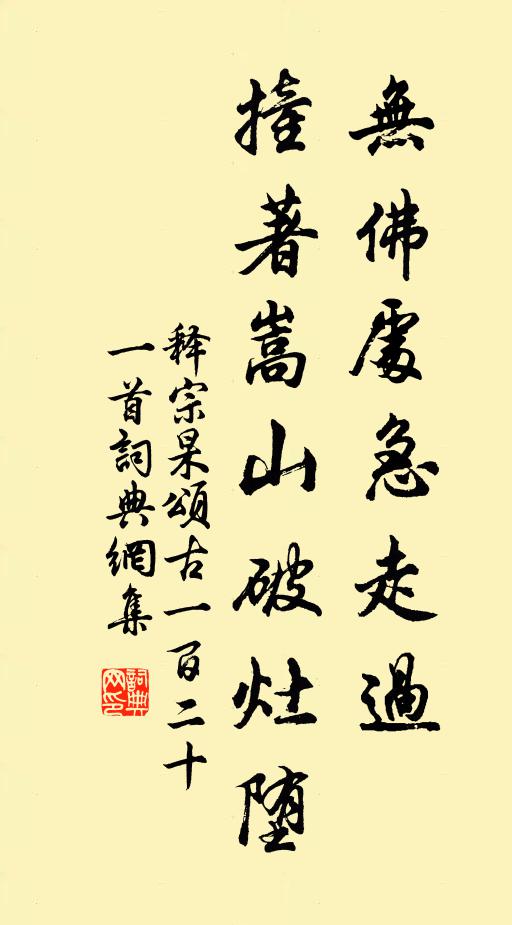 無佛處急走過
撞著嵩山破灶堕
释宗杲頌古一百二十
一首詞典網集
詞典網印